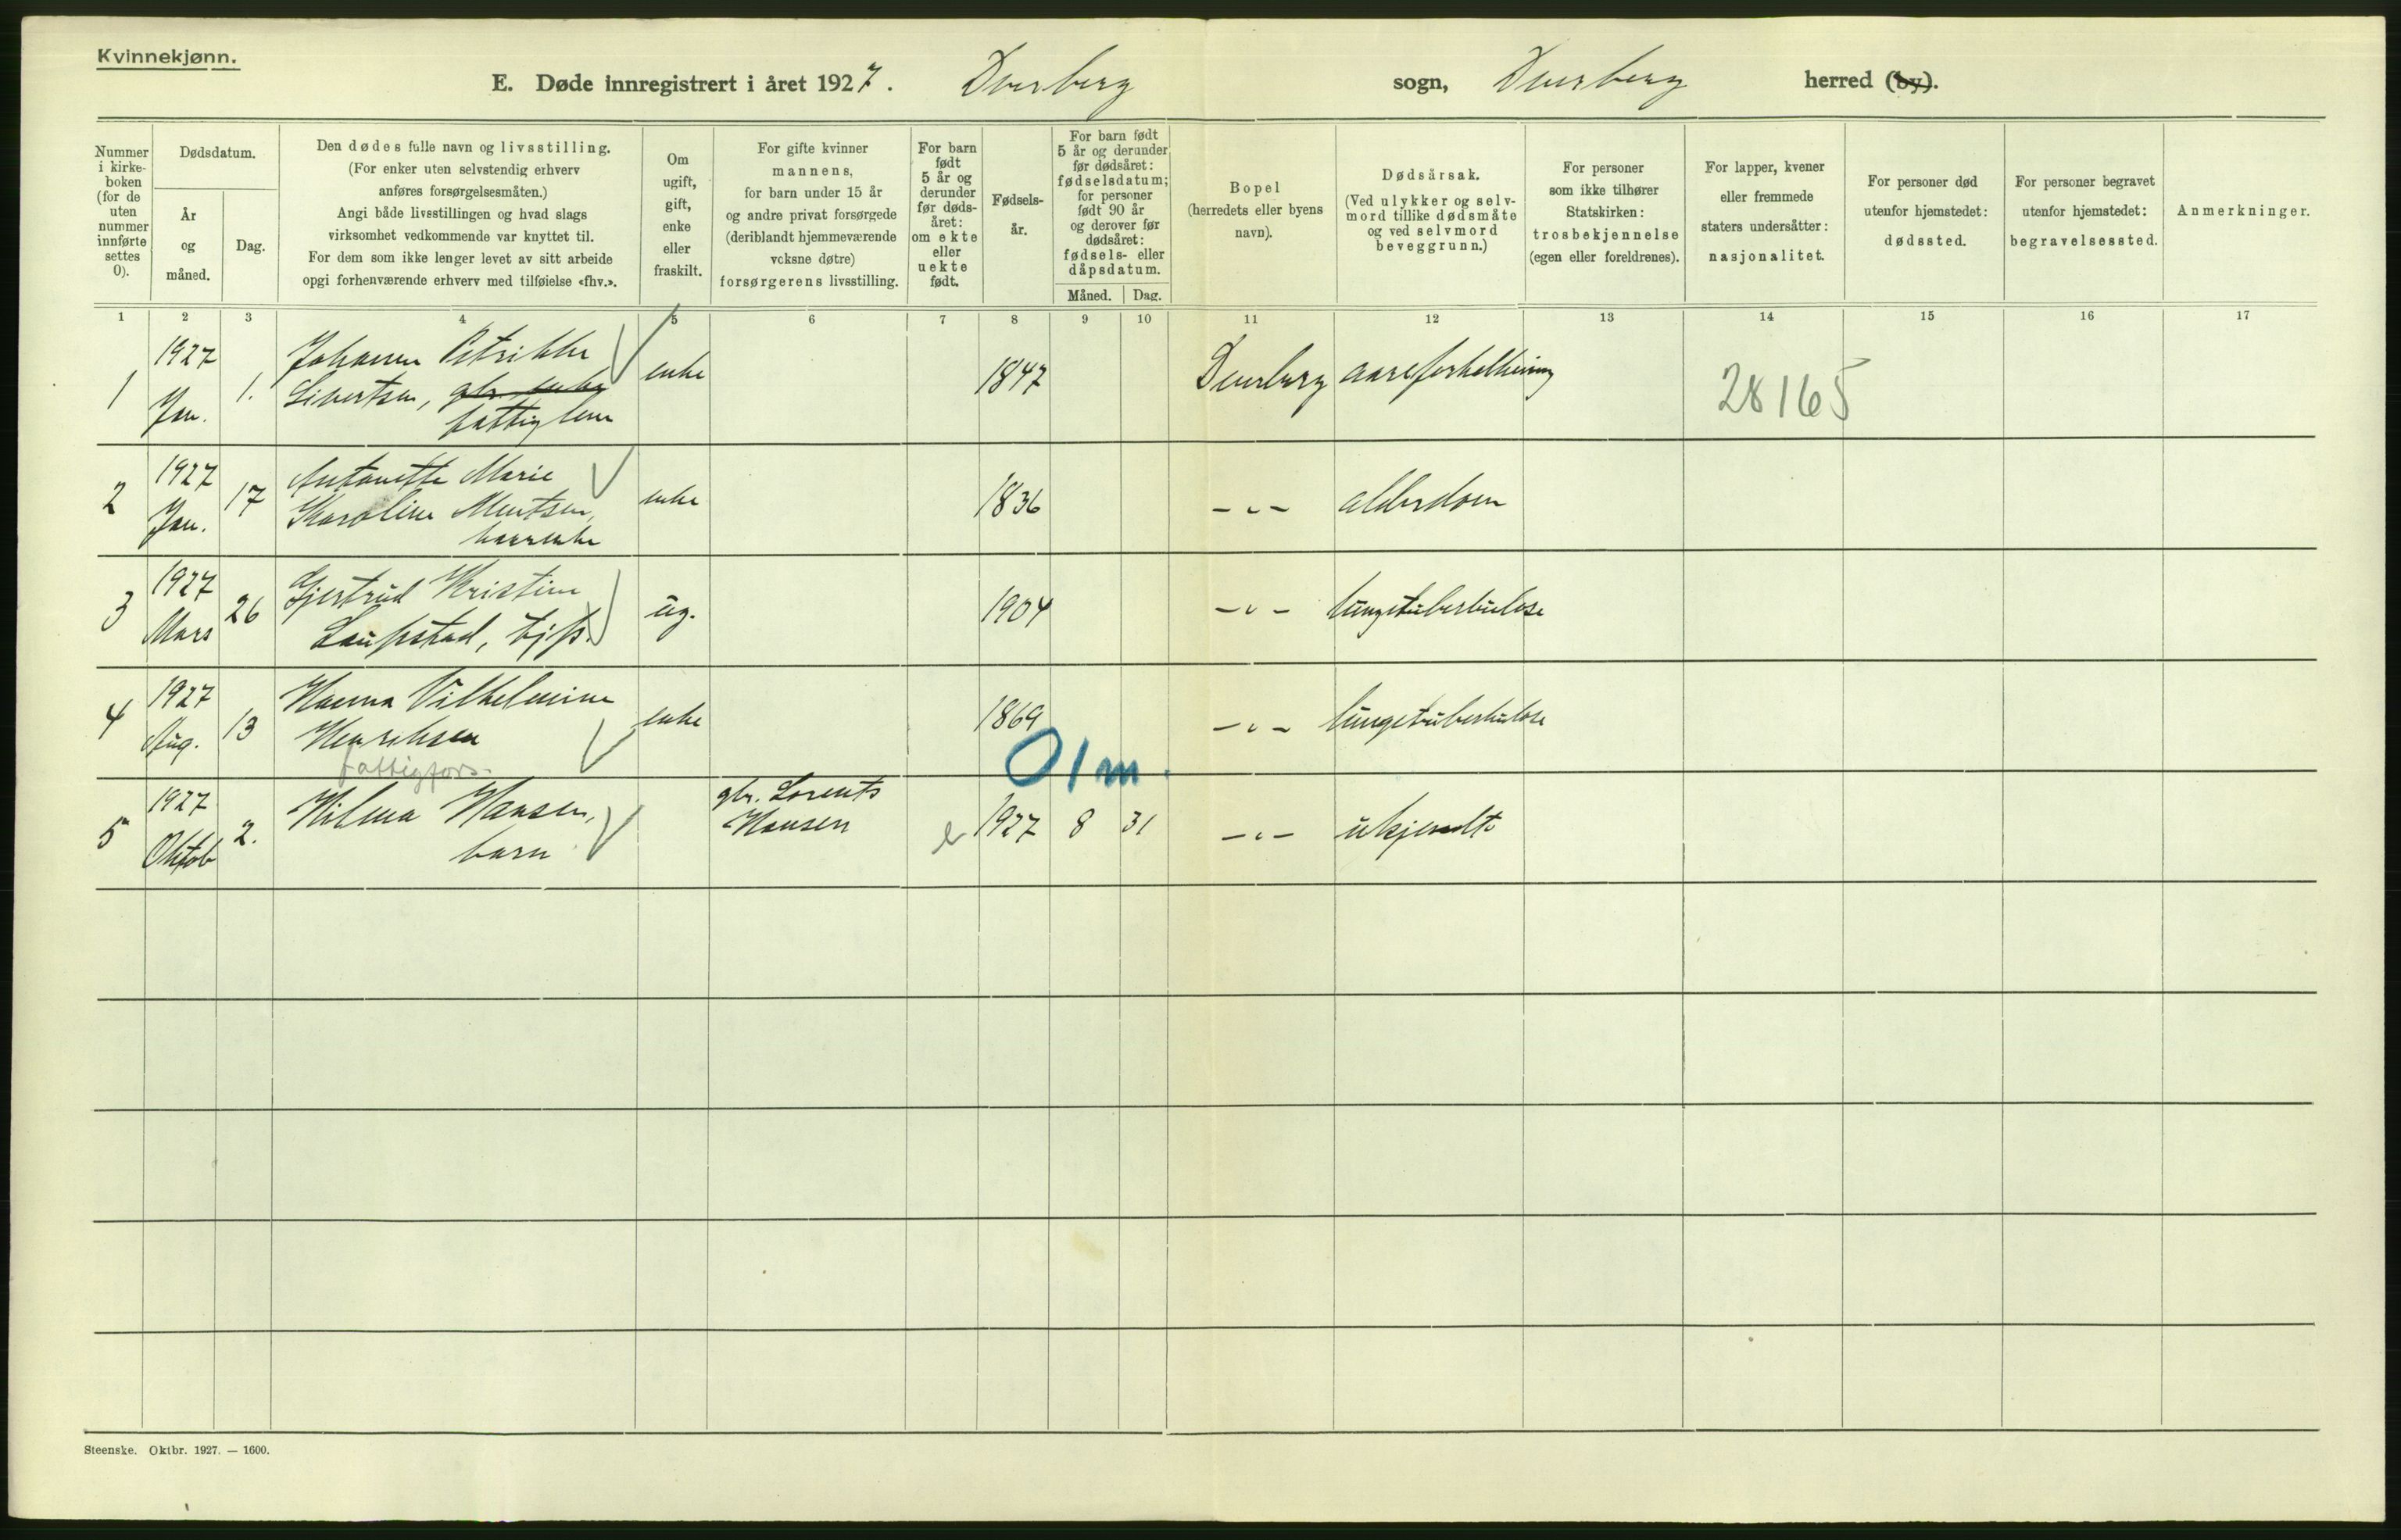 Kvinnekjønn.
E. Døde innregistrert i året 1927. Dverberg sogn, Dverberg herred (by).
Nummer i kirke-boken (for de uten nummer innførte settes 0).
Dødsdatum.
År og måned.
Dag.
Den dødes fulle navn og livsstilling.
(For enker uten selvstendig erhverv
anføres forsørgelsesmåten.)
Angi både livsstillingen og hvad slags
virksomhet vedkommende var knyttet til.
For dem som ikke lenger levet av sitt arbeide
opgi forhenværende erhverv med tilføielse «fhv.».
Om ugift, gift, enke eller fraskilt.
For gifte kvinner
mannens,
for barn under 15 år
og andre privat forsørgede
(deriblandt hjemmeværende
voksne døtre)
forsørgerens livsstilling.
For barn født 5 år og derunder før døds-året: om ekte eller uekte født.
Fødsels-år.
For barn født
5 år og derunder
før dødsåret:
fødselsdatum;
for personer
født 90 år
og derover før
dødsåret:
fødsels- eller
dåpsdatum.
Måned. Dag.
Bopel
(herredets eller byens
navn).
Dødsårsak.
(Ved ulykker og selv-
mord tillike dødsmåte
og ved selvmord
beveggrunn.)
For personer
som ikke tilhører
Statskirken:
trosbekjennelse
(egen eller foreldrenes).
For lapper, kvener
eller fremmede
staters undersåtter:
nasjonalitet.
For personer død
utenfor hjemstedet:
dødssted.
For personer begravet
utenfor hjemstedet:
begravelsessted.
Anmerkninger.
1 2 3 4 5 6 7 8 9 10 11 12 13 14 15 16 17
1 1927 Jan. 1. Johanna Petrikke
Sivertsen, gbr. enke
fattiglem
enke 1847 Dverberg aareforkalkning 28165
2 1927 Jan. 17 Antonette Marie
Karoline Mentsen,
kaarenke
enke 1836 -"- alderdom
3 1927 Mars 26 Gjertrud Kristine
Laukstad, tjp.
ug. 1904 -"- lungetuberkulose
4 1927 Aug. 13 Hanna Vilhelmine
Henriksen
fattigfors.
enke 1869 -"- lungetuberkulose
01 m.
5 1927 Oktob 2. Hilma Hansen,
barn
gbr. Lorents
Hansen
e 1927 8 31 -"- ukjendt
Steenske. Oktbr. 1927. — 1600.